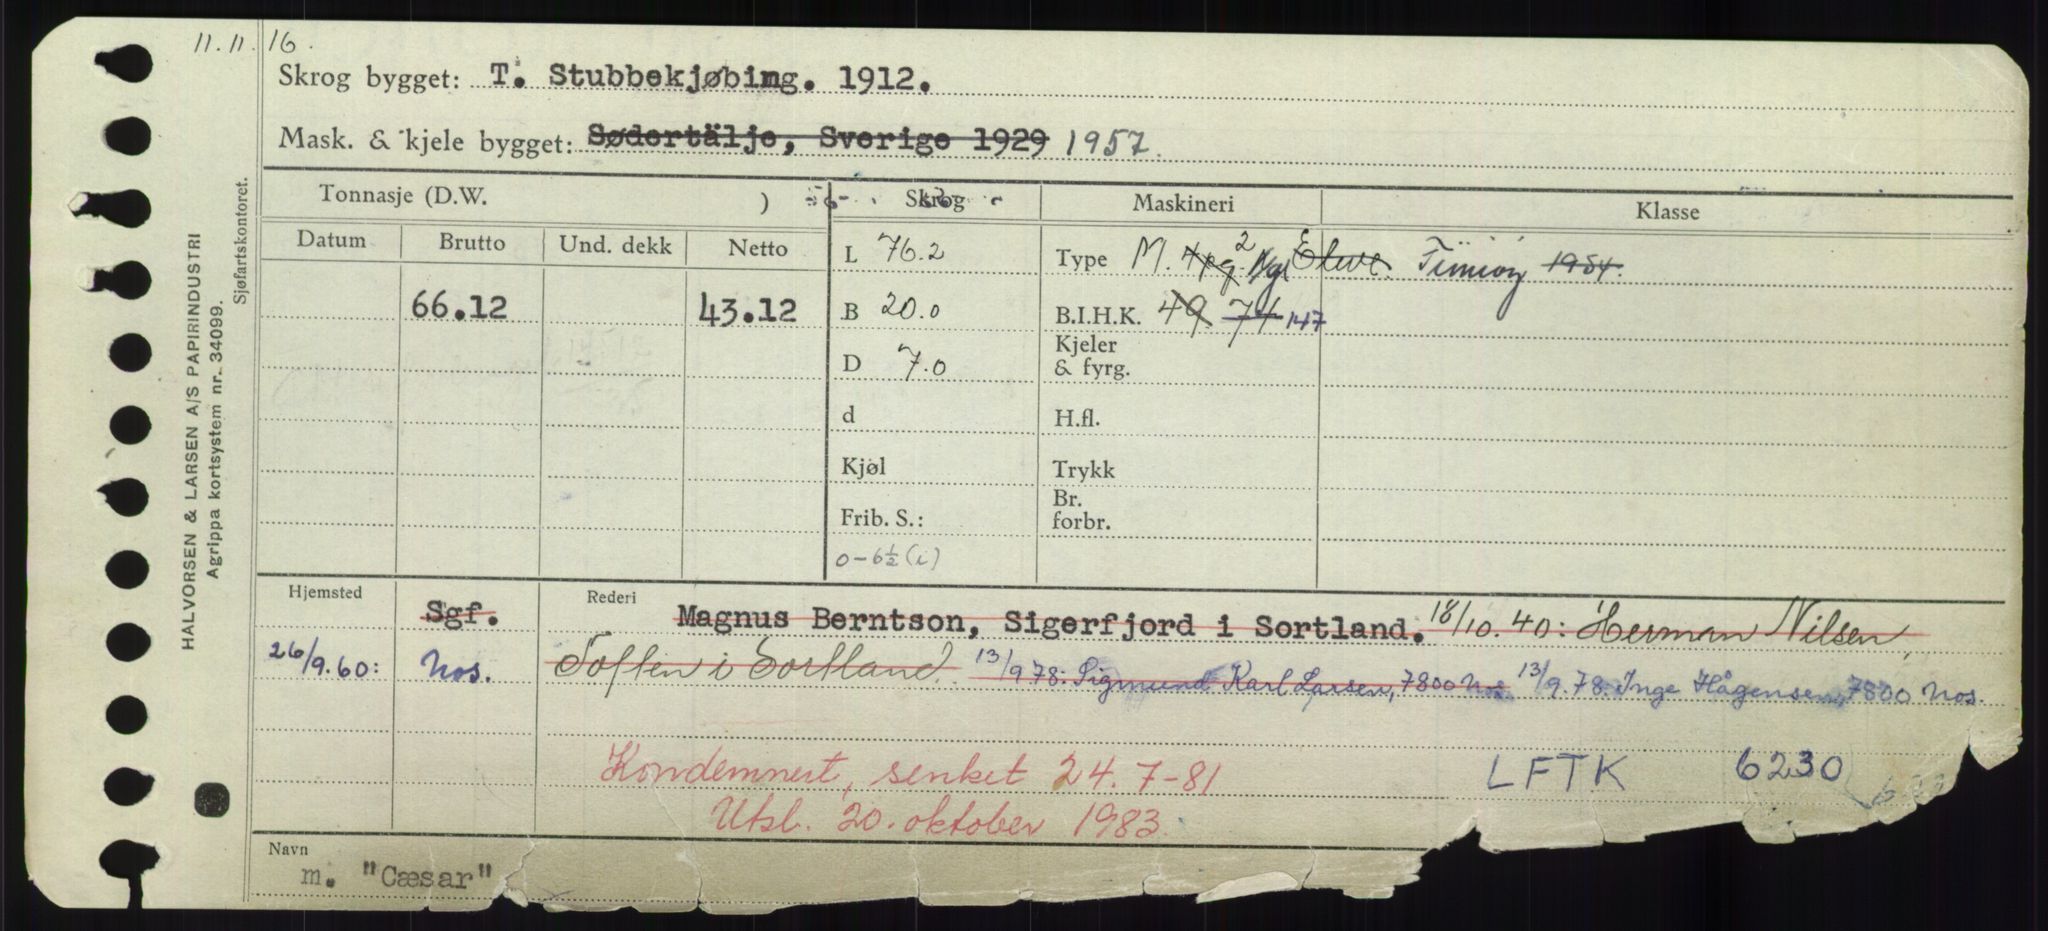 11.11.16.
Skrog bygget: T. Stubbekjøbing. 1912.
Mask. & kjele bygget: Sødertälje, Sverige 1929 1957.
HALVORSEN & LARSEN A/S PAPIRINDUSTRI
Agrippa kortsystem nr. 34099.
Sjøfartskontoret.
Tonnasje (D.W. ) Skrog Maskineri Klasse
Datum Brutto Und. dekk Netto
L 76.2 Type M. 2
66.12 43.12
B 20.0 B.I.H.K. 49 74 147
D 7.0 Kjeler & fyrg.
d H.fl.
Kjøl Trykk
Frib. S.: Br. forbr.
0-6½ (i)
Hjemsted Sgf. Rederi Magnus Berntson, Sigerfjord i Sortland. 18/10.40: Herman Nilsen,
26/9.60: Nos. i Sortland. 13/9.78: Sigmund Karl Larsen, 7800 Nos. 13/9.78: Inge Hågensen, 7800 Nos.
Kondemnert, senket 24.7-81 LFTK 6230
Utsl. 20. oktober 1983.
Navn
m. "Cæsar"